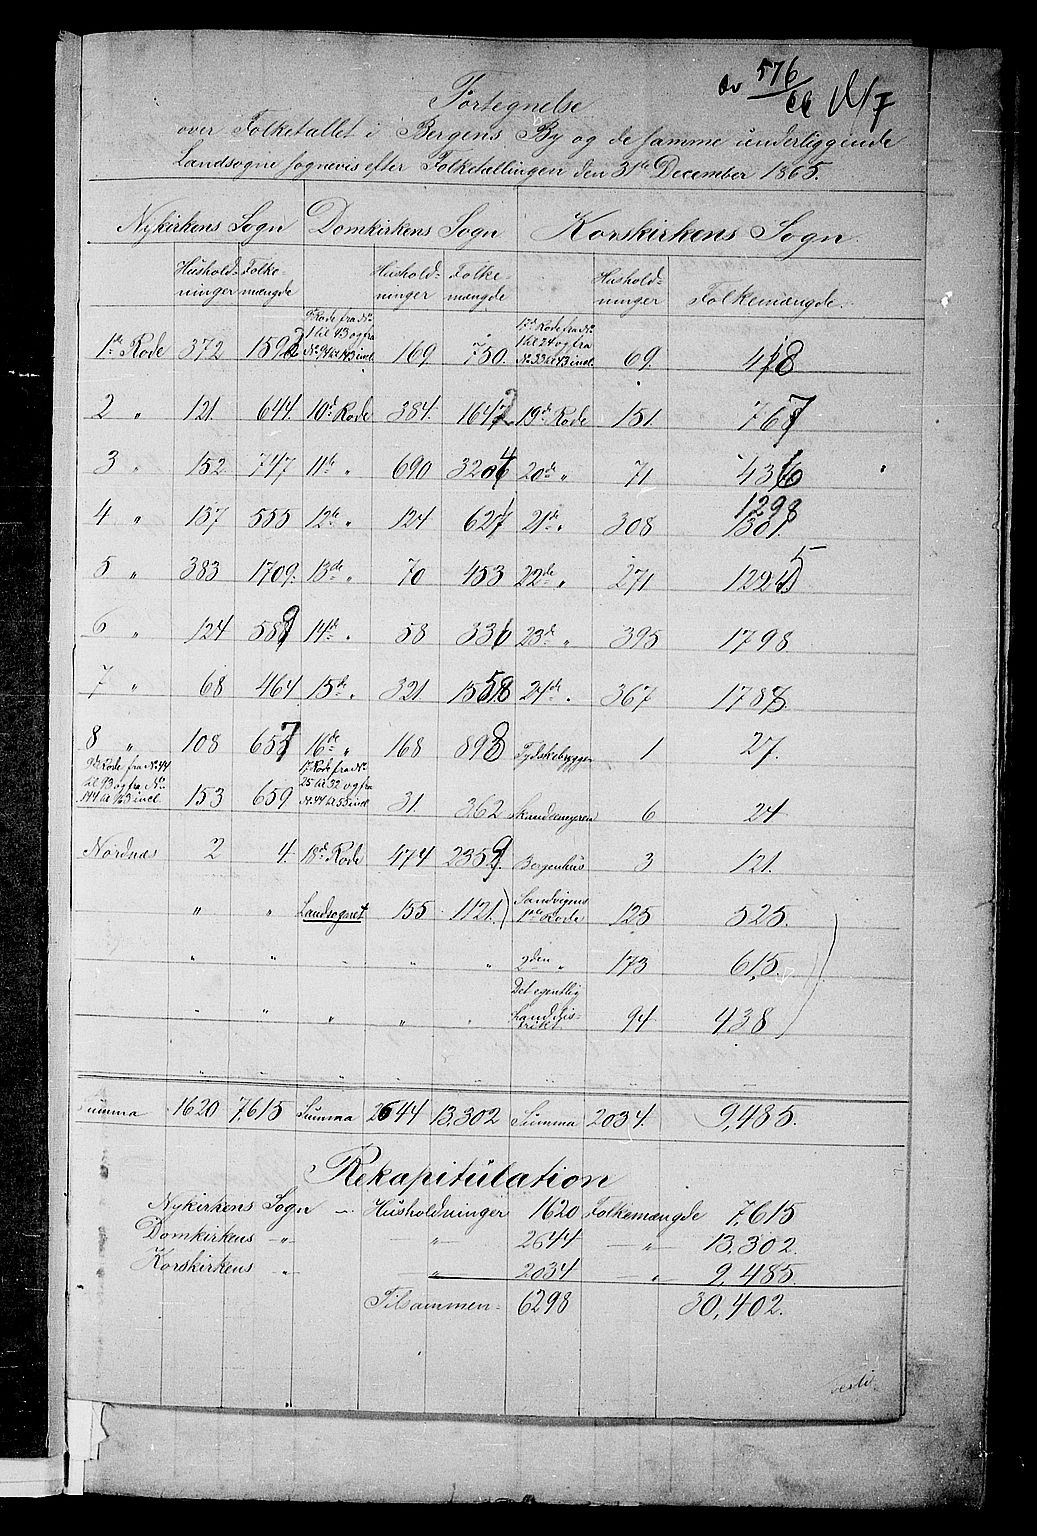 ov 576/66
Fortegnelse
over Folketallet i Bergens By og de samme underliggende
Landsogne sognevis efter Folketællingen den 31te December 1865.
Nykirkens Sogn Domkirkens Sogn Korskirkens Sogn.
Hushold- Folke- Hushold- Folke- Hushold-
ninger mængde ninger mængde ninger Folkemængde.
9de Rode fra No. 17de Rode fra No.
1 til 43 og fra 1 til 24 og fra
1ste Rode 372 1592 No. 94 til 143 incl. 169 750. No. 33 til 43 incl. 69. 418
2 " 121. 644. 10de Rode 384. 1642 19de Rode 151. 767
3 " 152 747 11te " 690 3204 20de " 71 436
4 " 137 555 12te " 124 627 21de " 308 1298
1301.
5 " 383 1709. 13de " 70 453 22de " 271 1225
6 " 124 589 14de " 58 336 23de " 395 1798
7 " 68 464 15de " 321. 1558 24de " 367 1788.
8 " 108 657 16de " 168 898 Tydskebryggen 1 27.
9de Rode fra No. 44 17de Rode fra No.
til 93 og fra No. 25 til 32 og fra
144 til 163 incl. 153 659 No. 44 til 55 incl. 31. 362 Skandsemyren 6 24
Nordnæs 2 4. 18de Rode 474 2359 Bergenhus 3 121.
" " Landsognet 155 1121. Sandvigens
1ste Rode 125 525.
" " " " " 2den " 173 615.
Det egentlig
" " " " " Landdis-
trikt 94 438
Summa 1620 7,615 Summa 2644 13,302 Summa 2034. 9,485.
Rekapitulation
Nykirkens Sogn — Husholdninger 1620 Folkemængde 7,615
Domkirkens —"— —"— 2644 —"— 13,302.
Korskirkens " —"— 2034 —"— 9,485.
Tilsammen 6298 30,402.